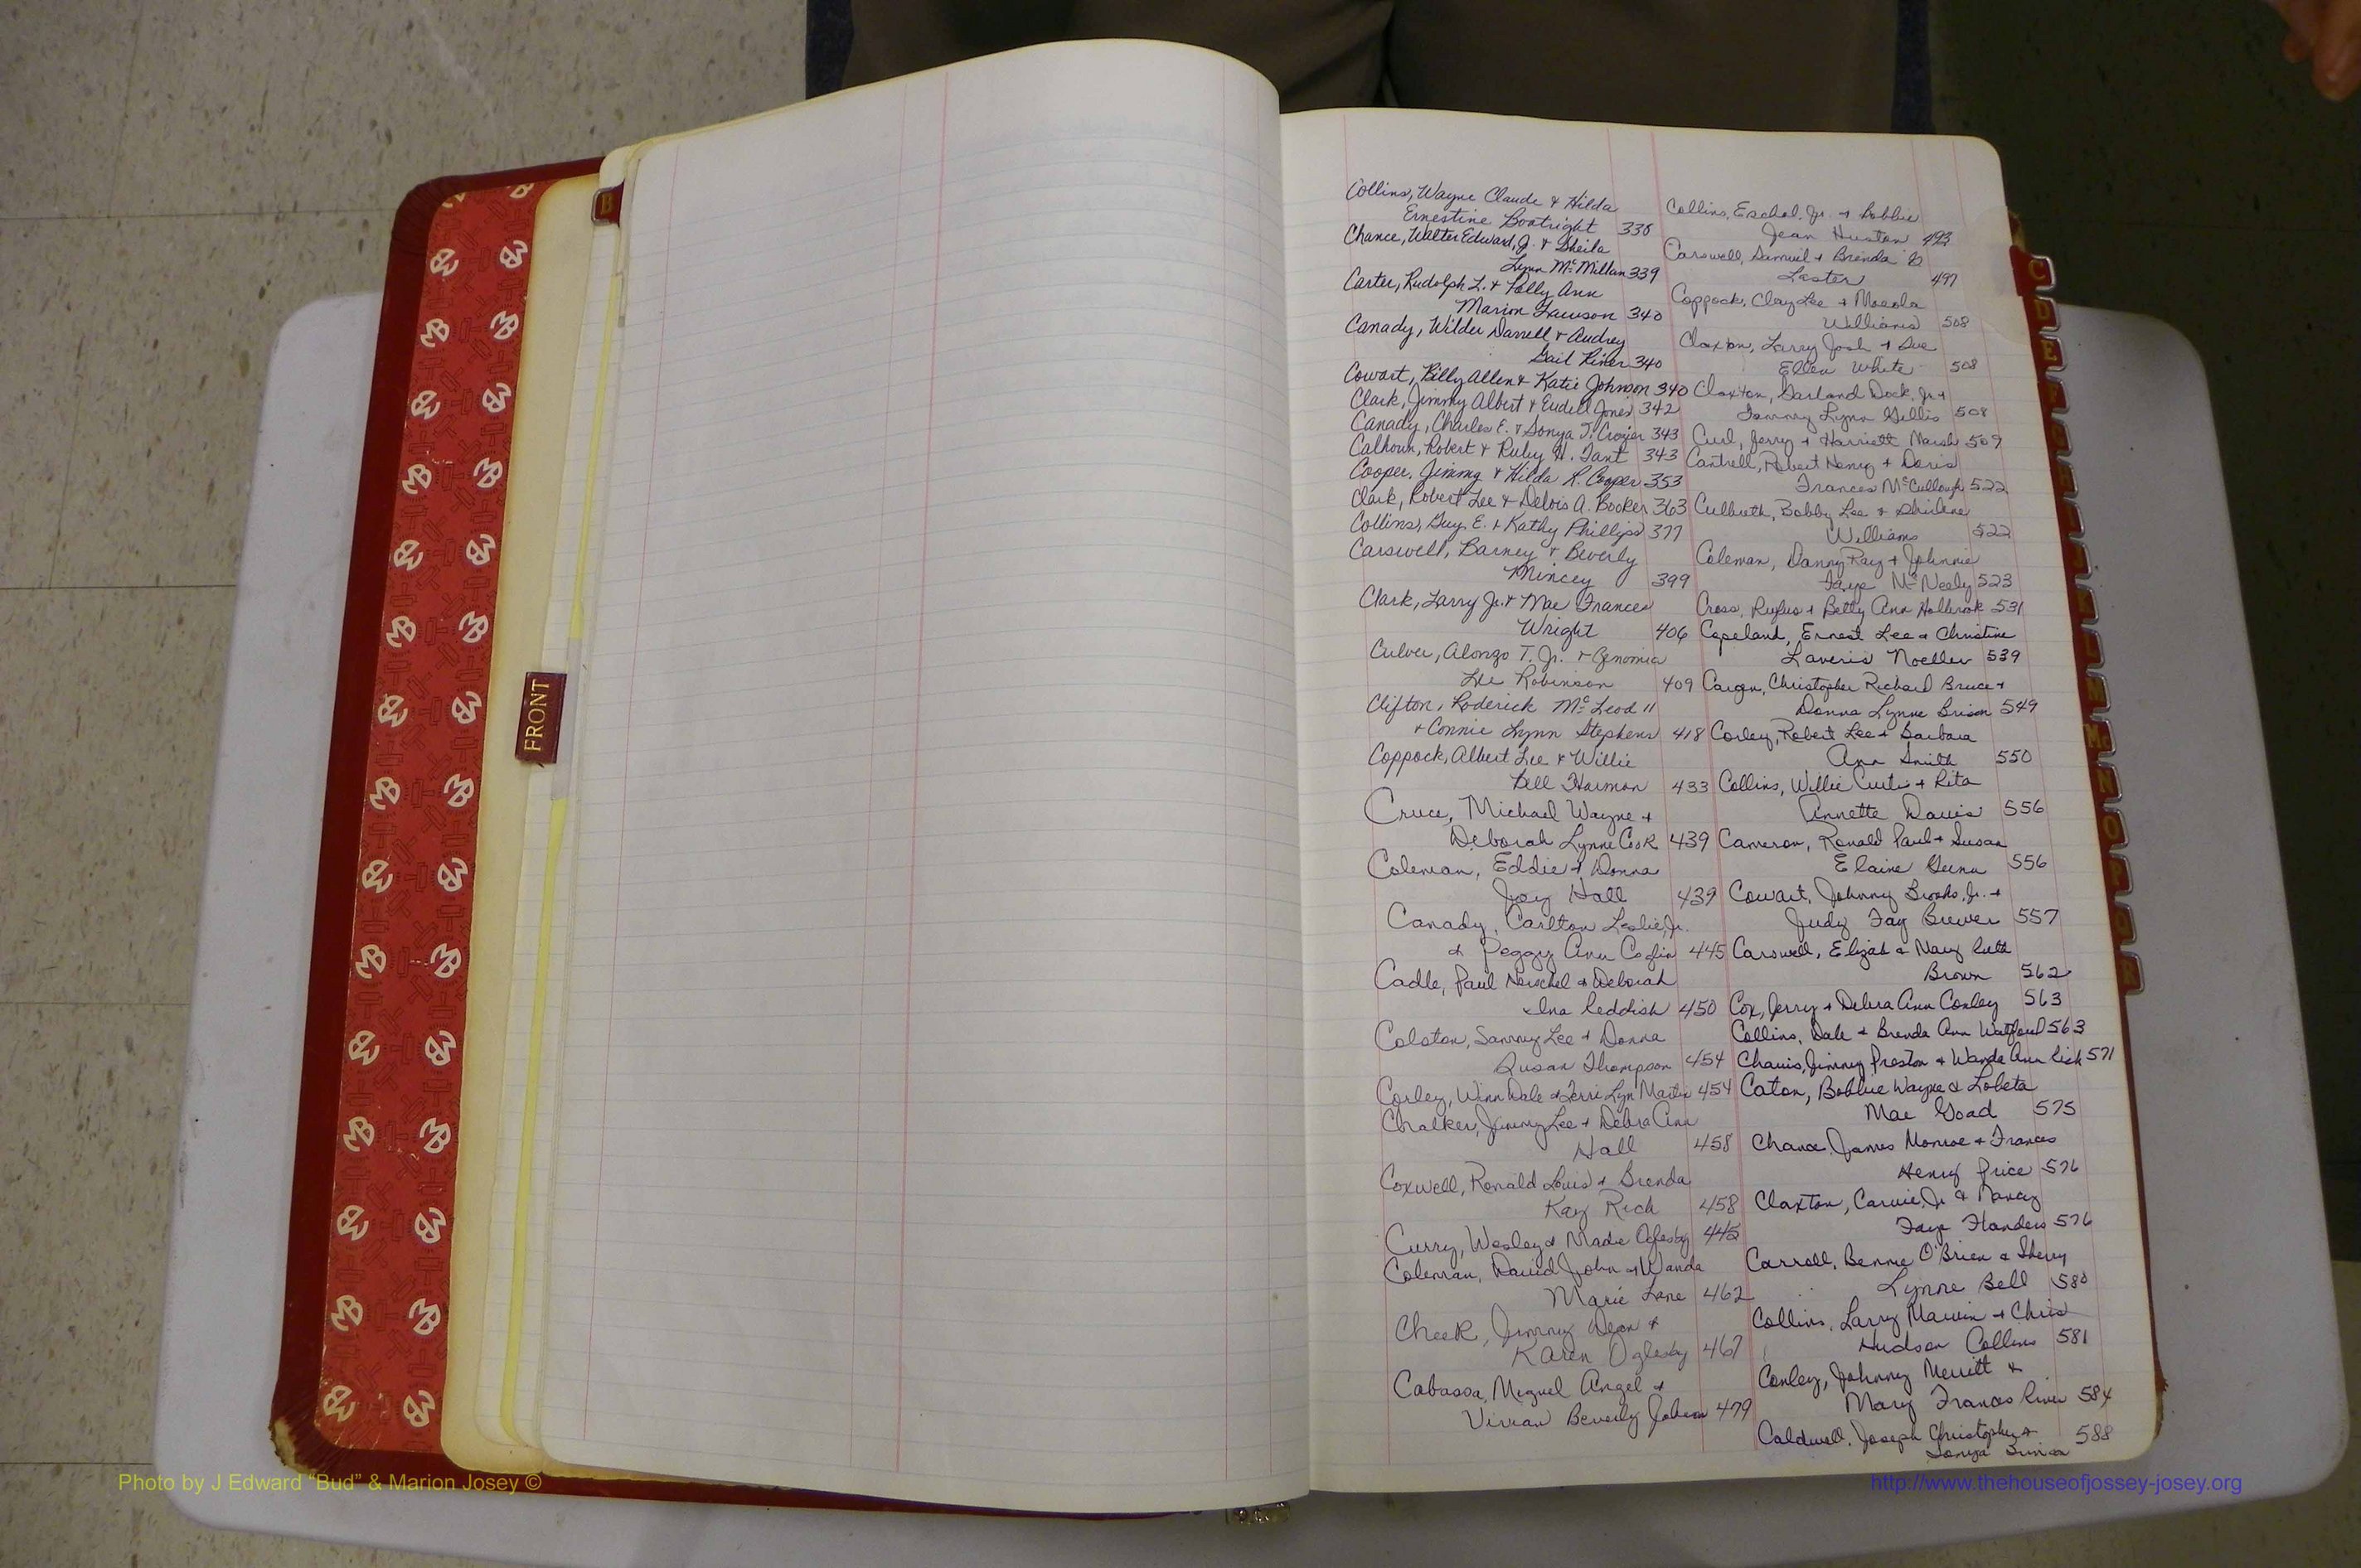 B
FRONT
Collins, Wayne Claude & Hilda
Ernestine Boatright 338
Chance, Walter Edward, Jr. & Sheila
Lynn McMillan 339
Carter, Rudolph L. & Polly Ann
Marion Lawson 340
Canady, Wilder Darrell & Audrey
Gail Kiner 340
Cowart, Billy Allen & Katie Johnson 340
Clark, Jimmy Albert & Eudell Jones 342
Canady, Charles E. & Sonya T. Crozier 343
Calhoun, Robert & Ruby H. Tant 343
Cooper, Jimmy & Hilda R. Cooper 353
Clark, Robert Lee & Delois A. Booker 363
Collins, Guy E. & Kathy Phillips 377
Carswell, Barney & Beverly
Mincey 399
Clark, Larry Jr. & Mae Frances
Wright 406
Culver, Alonzo T. Jr. & Genomia
Lee Robinson 409
Clifton, Roderick McLeod II
& Connie Lynn Stephens 418
Coppock, Albert Lee & Willie
Bell Harmon 433
Cruce, Michael Wayne &
Deborah Lynne Cook 439
Coleman, Eddie & Donna
Joy Hall 439
Canady, Carlton Leslie, Jr.
& Peggy Ann Coffin 445
Cadle, Paul Herschel & Deborah
Ina Reddish 450
Colston, Sammy Lee & Donna
Susan Thompson 454
Corley, Winn Dale & Terri Lyn Martin 454
Chalker, Jimmy Lee & Debra Ann
Hall 458
Coxwell, Ronald Louis & Brenda
Kay Rich 458
Curry, Wesley & Madie Oglesby 445
Coleman, David John & Wanda
Marie Lane 462
Cheek, Jimmy Deon &
Karen Oglesby 467
Cabassa, Miguel Angel &
Vivian Beverly 479
Collins, Eschol, Jr. & Bobbie
Jean Huston 493
Carswell, Samuel & Brenda
Lester 497
Coppock, Clay Lee & Maeola
Williams 508
Claxton, Larry Josh & Sue
Ellen White 508
Claxton, Garland Dock, Jr. &
Tammy Lynn Gillis 508
Curl, Jerry & Harriett Marsh 509
Cantrell, Robert Henry & Doris
Frances McCullough 522
Culbreth, Bobby Lee & Shirlene
Williams 522
Coleman, Danny Ray & Johnnie
Faye McNeely 523
Cross, Rufus & Betty Ann Holbrook 531
Copeland, Ernest Lee & Christine
Laveris 539
Christopher Richard Bruce &
Donna Lynne Brison 549
Corley, Robert Lee & Barbara
Ann Smith 550
Collins, Willie Curtis & Rita
Annette Davis 556
Cameron, Ronald Paul & Susan
Elaine Gunn 556
Cowart, Johnny Brooks, Jr. &
Judy Fay Brewer 557
Carswell, Elizah & Mary Ruth
Brown 562
Cox, Jerry & Debra Ann Conley 563
Collins, Dale & Brenda Ann Watford 563
Chavis, Jimmy Preston & Wanda Ann Rich 571
Caton, Bobbie Wayne & Lobeta
Mae Goad 575
Chance, James Monroe & Frances
Henry Price 576
Claxton, Carvie, Jr. & Nancy
Faye Flanders 576
Carroll, Bennie O'Brien & Sherry
Lynne Bell 580
Collins, Larry Marvin & Chris
Hudson Collins 581
Conley, Johnny Merritt &
Mary Frances 584
Caldwell, Joseph Christopher &
588
C
D
E
M
Mc
N
O
P
Photo by J Edward “Bud” & Marion Josey ©
http://www.thehouseofjossey-josey.org